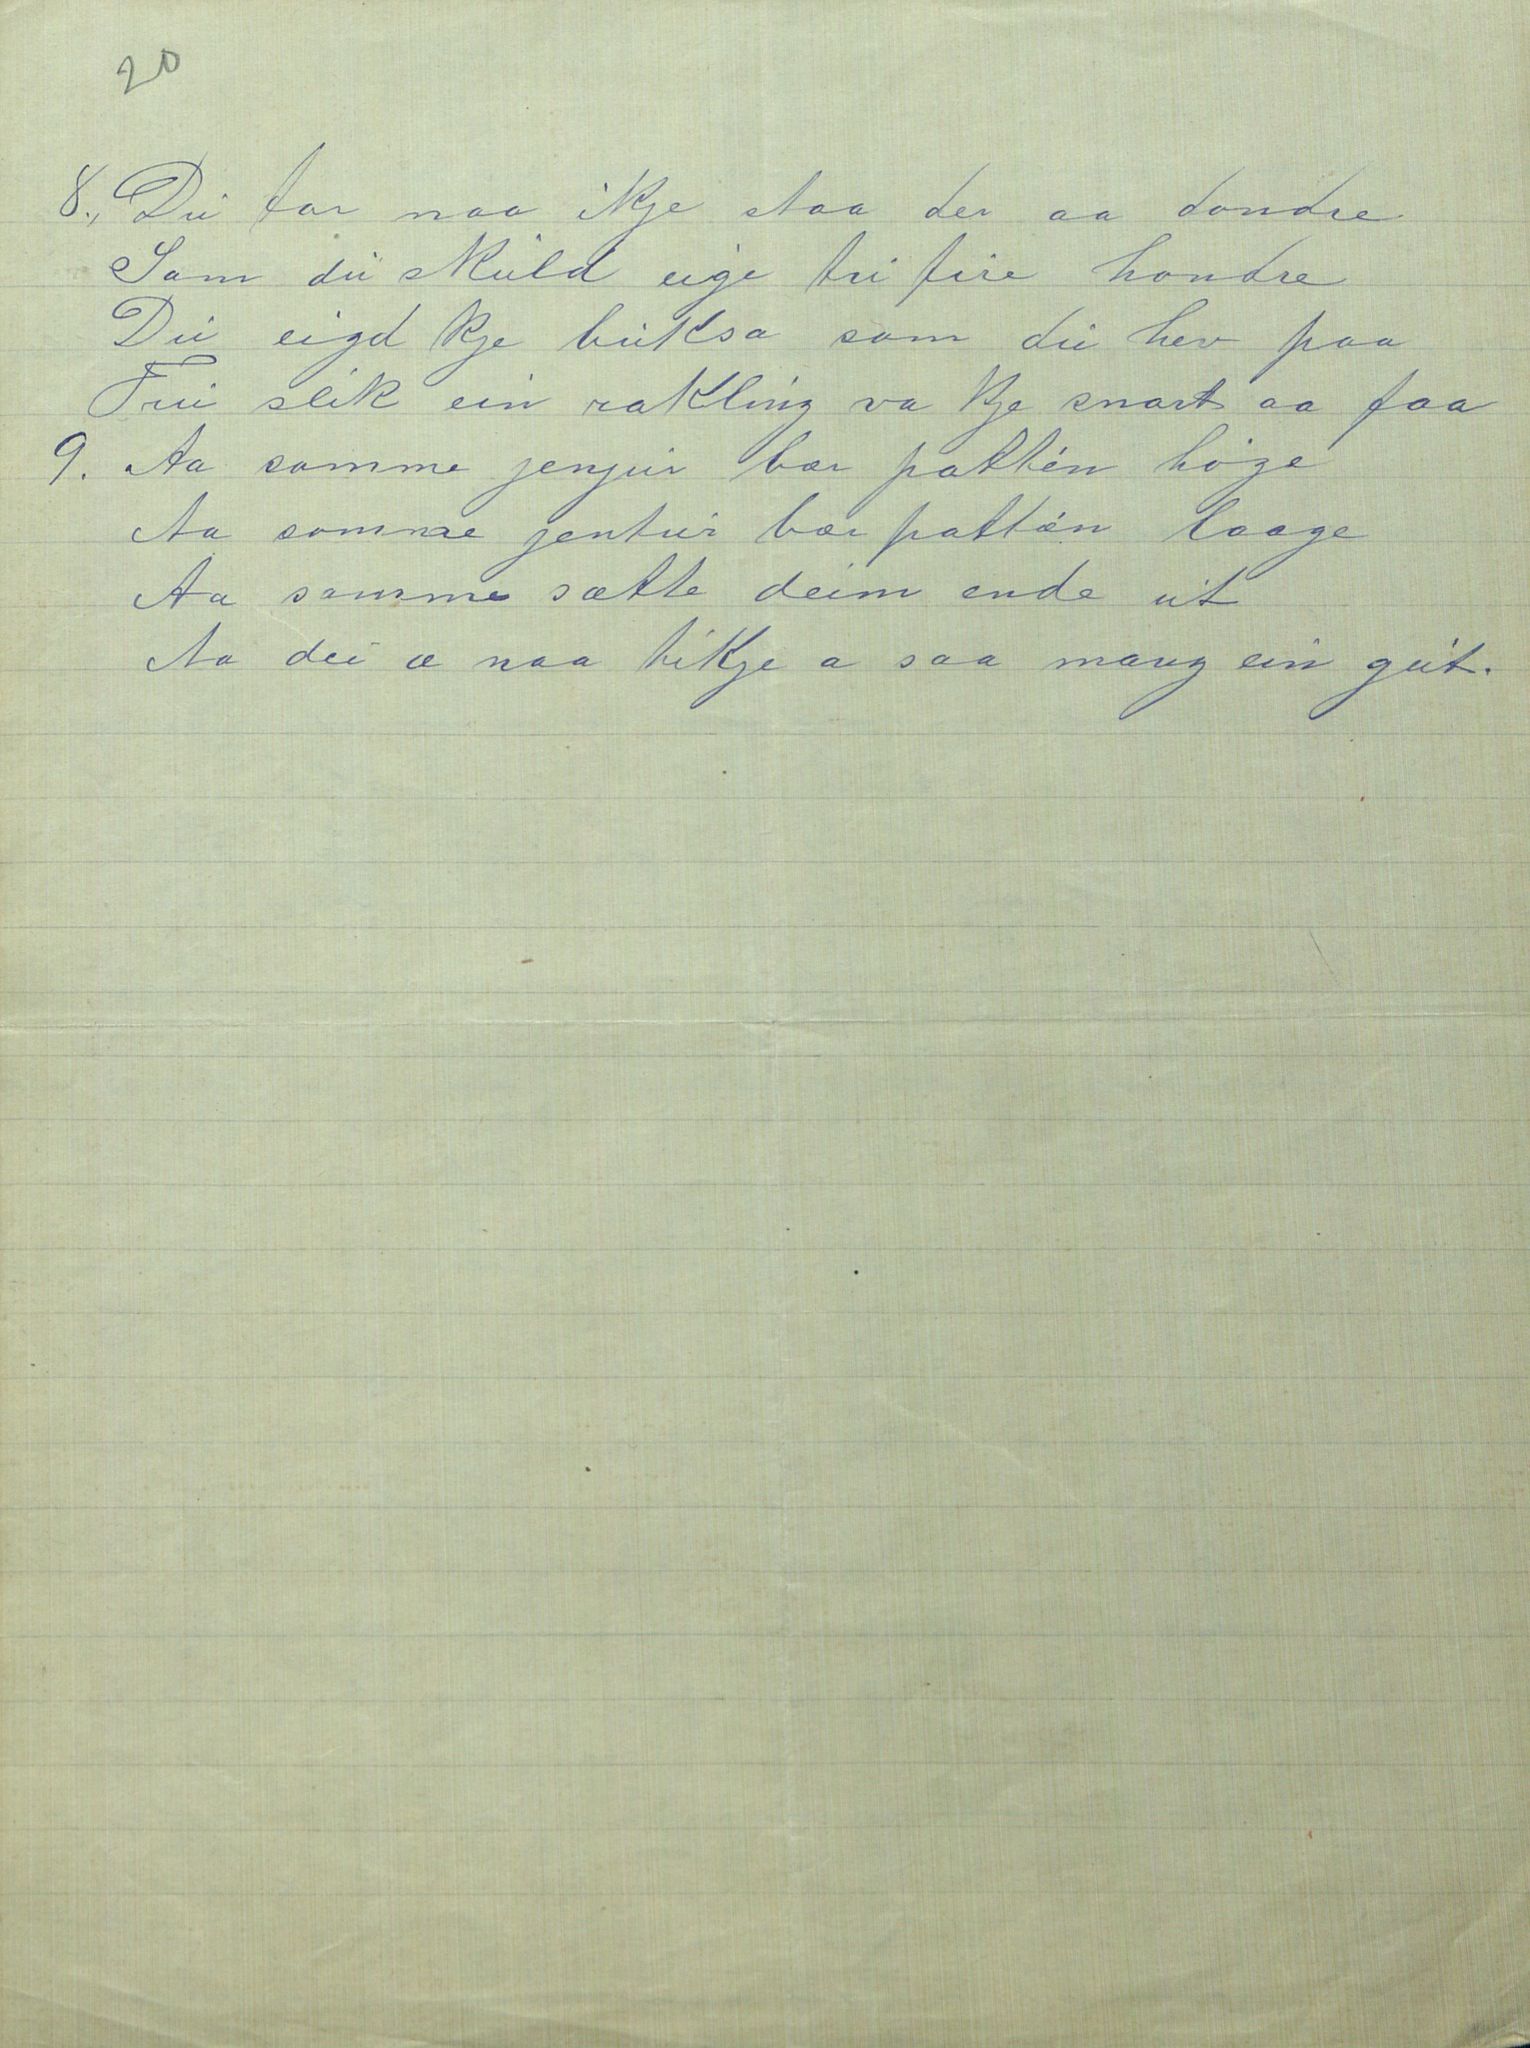 20
8., Du tar naa ikje staa der aa dondre
Som du skuld eige tri fire hondre
Du eigd kje buksa som du hev paa
Tru slik ein rakling va kje snart aa faa
9. Aa somme jenjur bær pattén høge
Aa somme jentur bær pattæn laage
Aa somme sætte deim ende ut
Aa dei æ naa likje a saa mang ein gut.